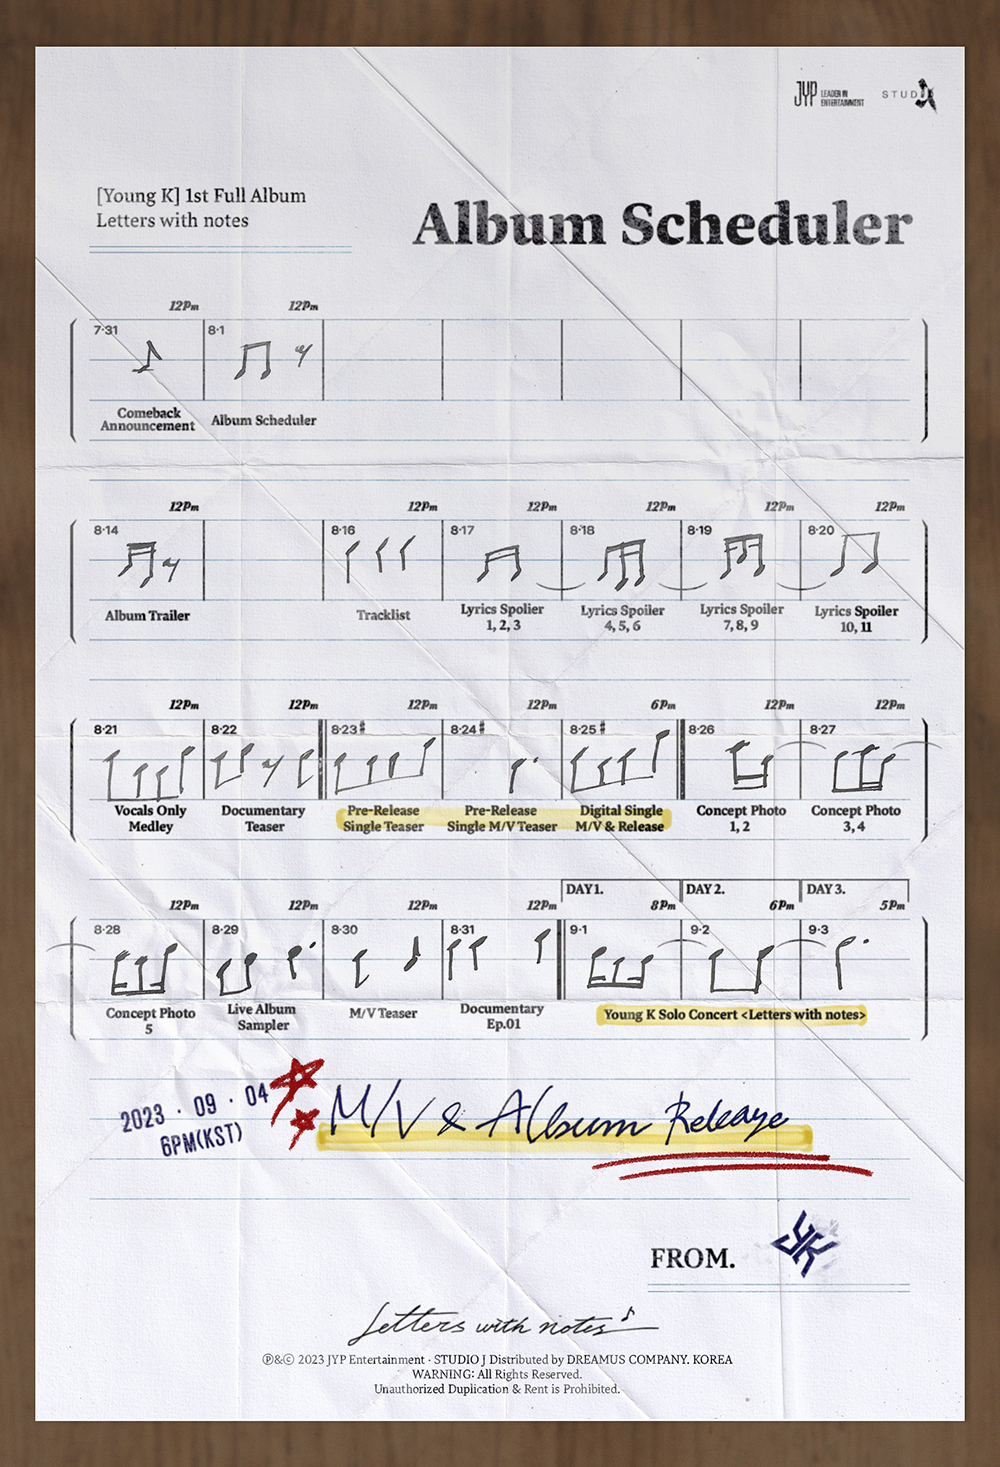 JYP LEADER IN
ENTERTAINMENT
STUDIO J
[Young K] 1st Full Album
Letters with notes
Album Scheduler
12Pm 12Pm
7·31 8·1
Comeback
Announcement
Album Scheduler
12Pm 12Pm 12Pm 12Pm 12Pm 12Pm
8·14 8·16 8·17 8·18 8·19 8·20
Album Trailer
Tracklist
Lyrics Spolier
1, 2, 3
Lyrics Spoiler
4, 5, 6
Lyrics Spoiler
7, 8, 9
Lyrics Spoiler
10, 11
12Pm 12Pm 12Pm 12Pm 6Pm 12Pm 12Pm
8·21 8·22 8·23# 8·24# 8·25# 8·26 8·27
Vocals Only
Medley
Documentary
Teaser
Pre-Release
Single Teaser
Pre-Release
Single M/V Teaser
Digital Single
M/V & Release
Concept Photo
1, 2
Concept Photo
3, 4
DAY1. DAY2. DAY3.
12Pm 12Pm 12Pm 12Pm 8Pm 6Pm 5Pm
8·28 8·29 8·30 8·31 9·1 9·2 9·3
Concept Photo
5
Live Album
Sampler
M/V Teaser
Documentary
Ep.01
Young K Solo Concert <Letters with notes>
2023 · 09 · 04
6PM(KST)
M/V & Album Release
FROM. YK
Letters with notes
Ⓟ&ⓒ 2023 JYP Entertainment · STUDIO J Distributed by DREAMUS COMPANY. KOREA
WARNING: All Rights Reserved.
Unauthorized Duplication & Rent is Prohibited.